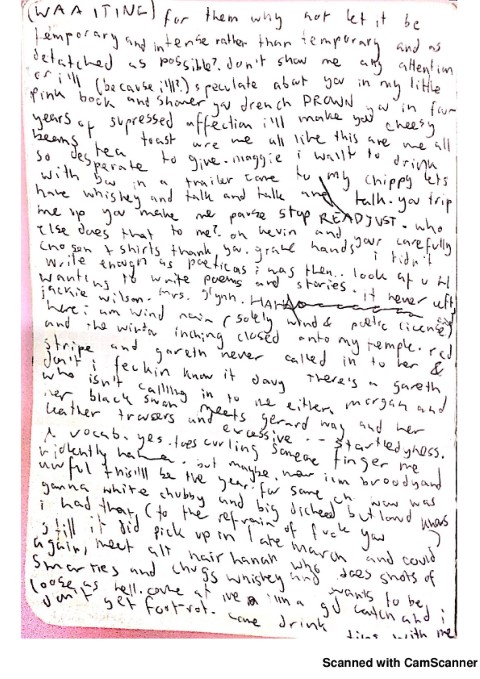 (WAAITING) for them why not let it be
temporary and intense rather than temporary and as
detatched as possible? don't show me any attention
or i'll (because ill?) speculate about you in my little
pink book and shower you drench DROWN you in four
years of supressed affection i'll make you cheesy
beans tea toast are me all like this are me all
so desperate to give. maggie i want to drink
with you in a trailer come to my chippy lets
have whiskey and talk and talk and talk. you trip
me up you make me pause stop READJUST. who
else does that to me? oh kevin and your carefully
chosen t shirts thank you. grave hands i didn't
write enough as poetic as i was then.. look at u
wanting to write poems and stories. it never left
jackie wilson. mrs. glynn. HAHA
here i am wind rain (solely wind & poetic license)
and the winter inching closed onto my temple. red
stripe and gareth never called in to her &
don't i feckin know it davy there's a gareth
who isn't calling in to me either. morgan and
her black swan meets gerard way and her
leather trousers and excessive -- startledyness.
vocab. yes. toes curling someone finger me
violently haha. but maybe. now i'm broody and
awful this'll be the year for some
gonna white chubby and big dicked but loud
i had that (to the refrain of fuck you
still it did pick up in late march and could
again, meet alt hair hanah who does shots of
smarties and chugs whiskey and wants to be
loose as hell. come at me i'm a gd catch and i
don't get footrot. come drink with me